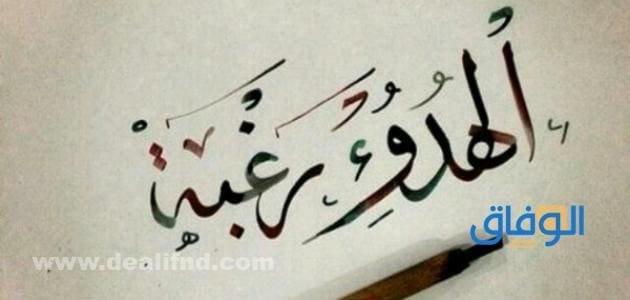 الهدوء رغبة
الوفاق
www.dealifnd.com